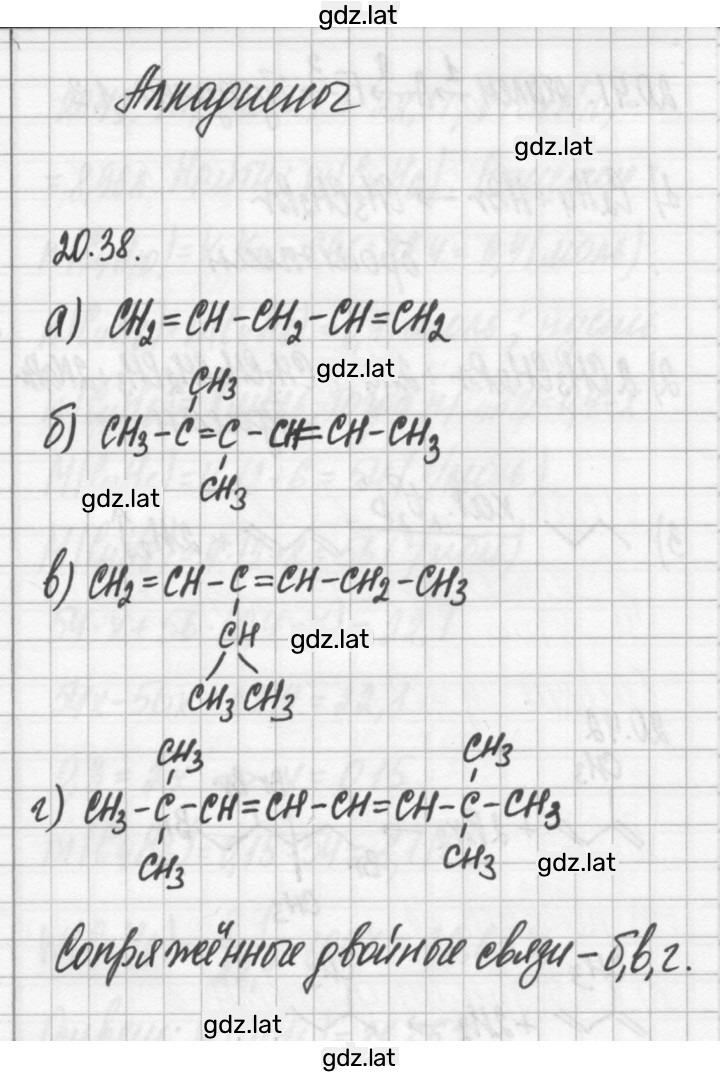 gdz.lat
Алкадиены
gdz.lat
20.38.
а) CH₂=CH-CH₂-CH=CH₂
gdz.lat
CH₃
б) CH₃-C=C-CH=CH-CH₃
CH₃
gdz.lat
в) CH₂=CH-C=CH-CH₂-CH₃
CH
gdz.lat
CH₃ CH₃
CH₃ CH₃
г) CH₃-C-CH=CH-CH=CH-C-CH₃
CH₃ CH₃
gdz.lat
Сопряжённые двойные связи - б, в, г.
gdz.lat
gdz.lat